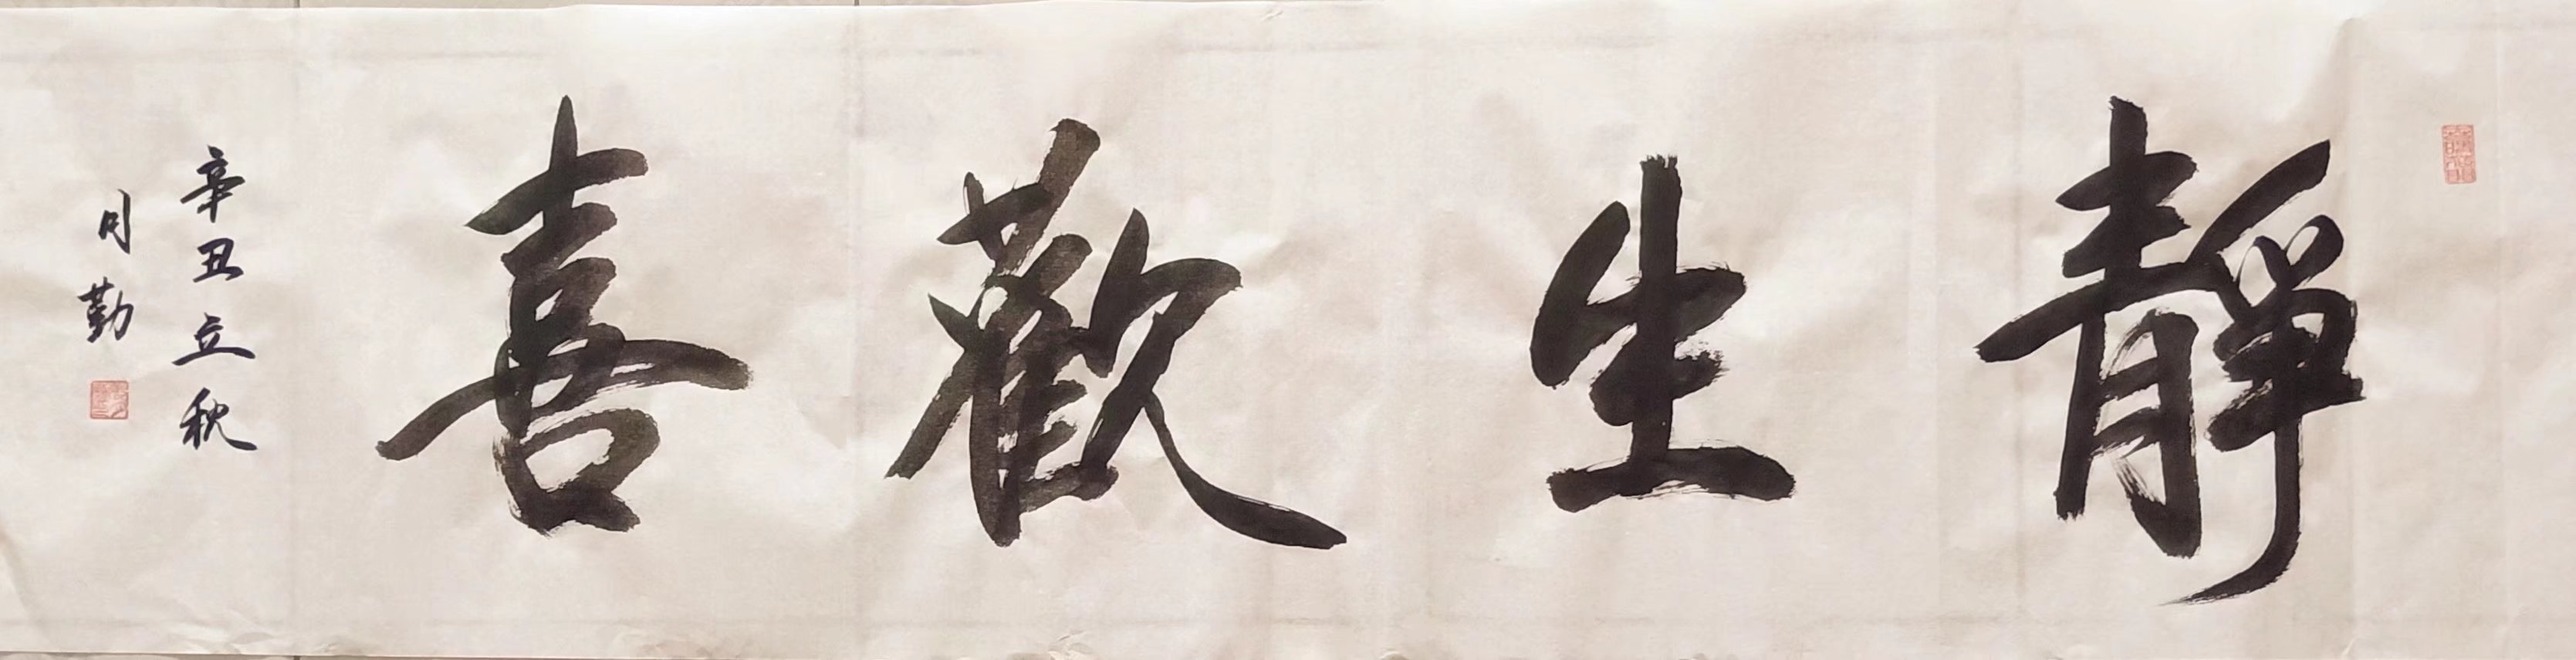 靜生歡喜
辛丑立秋
月勤